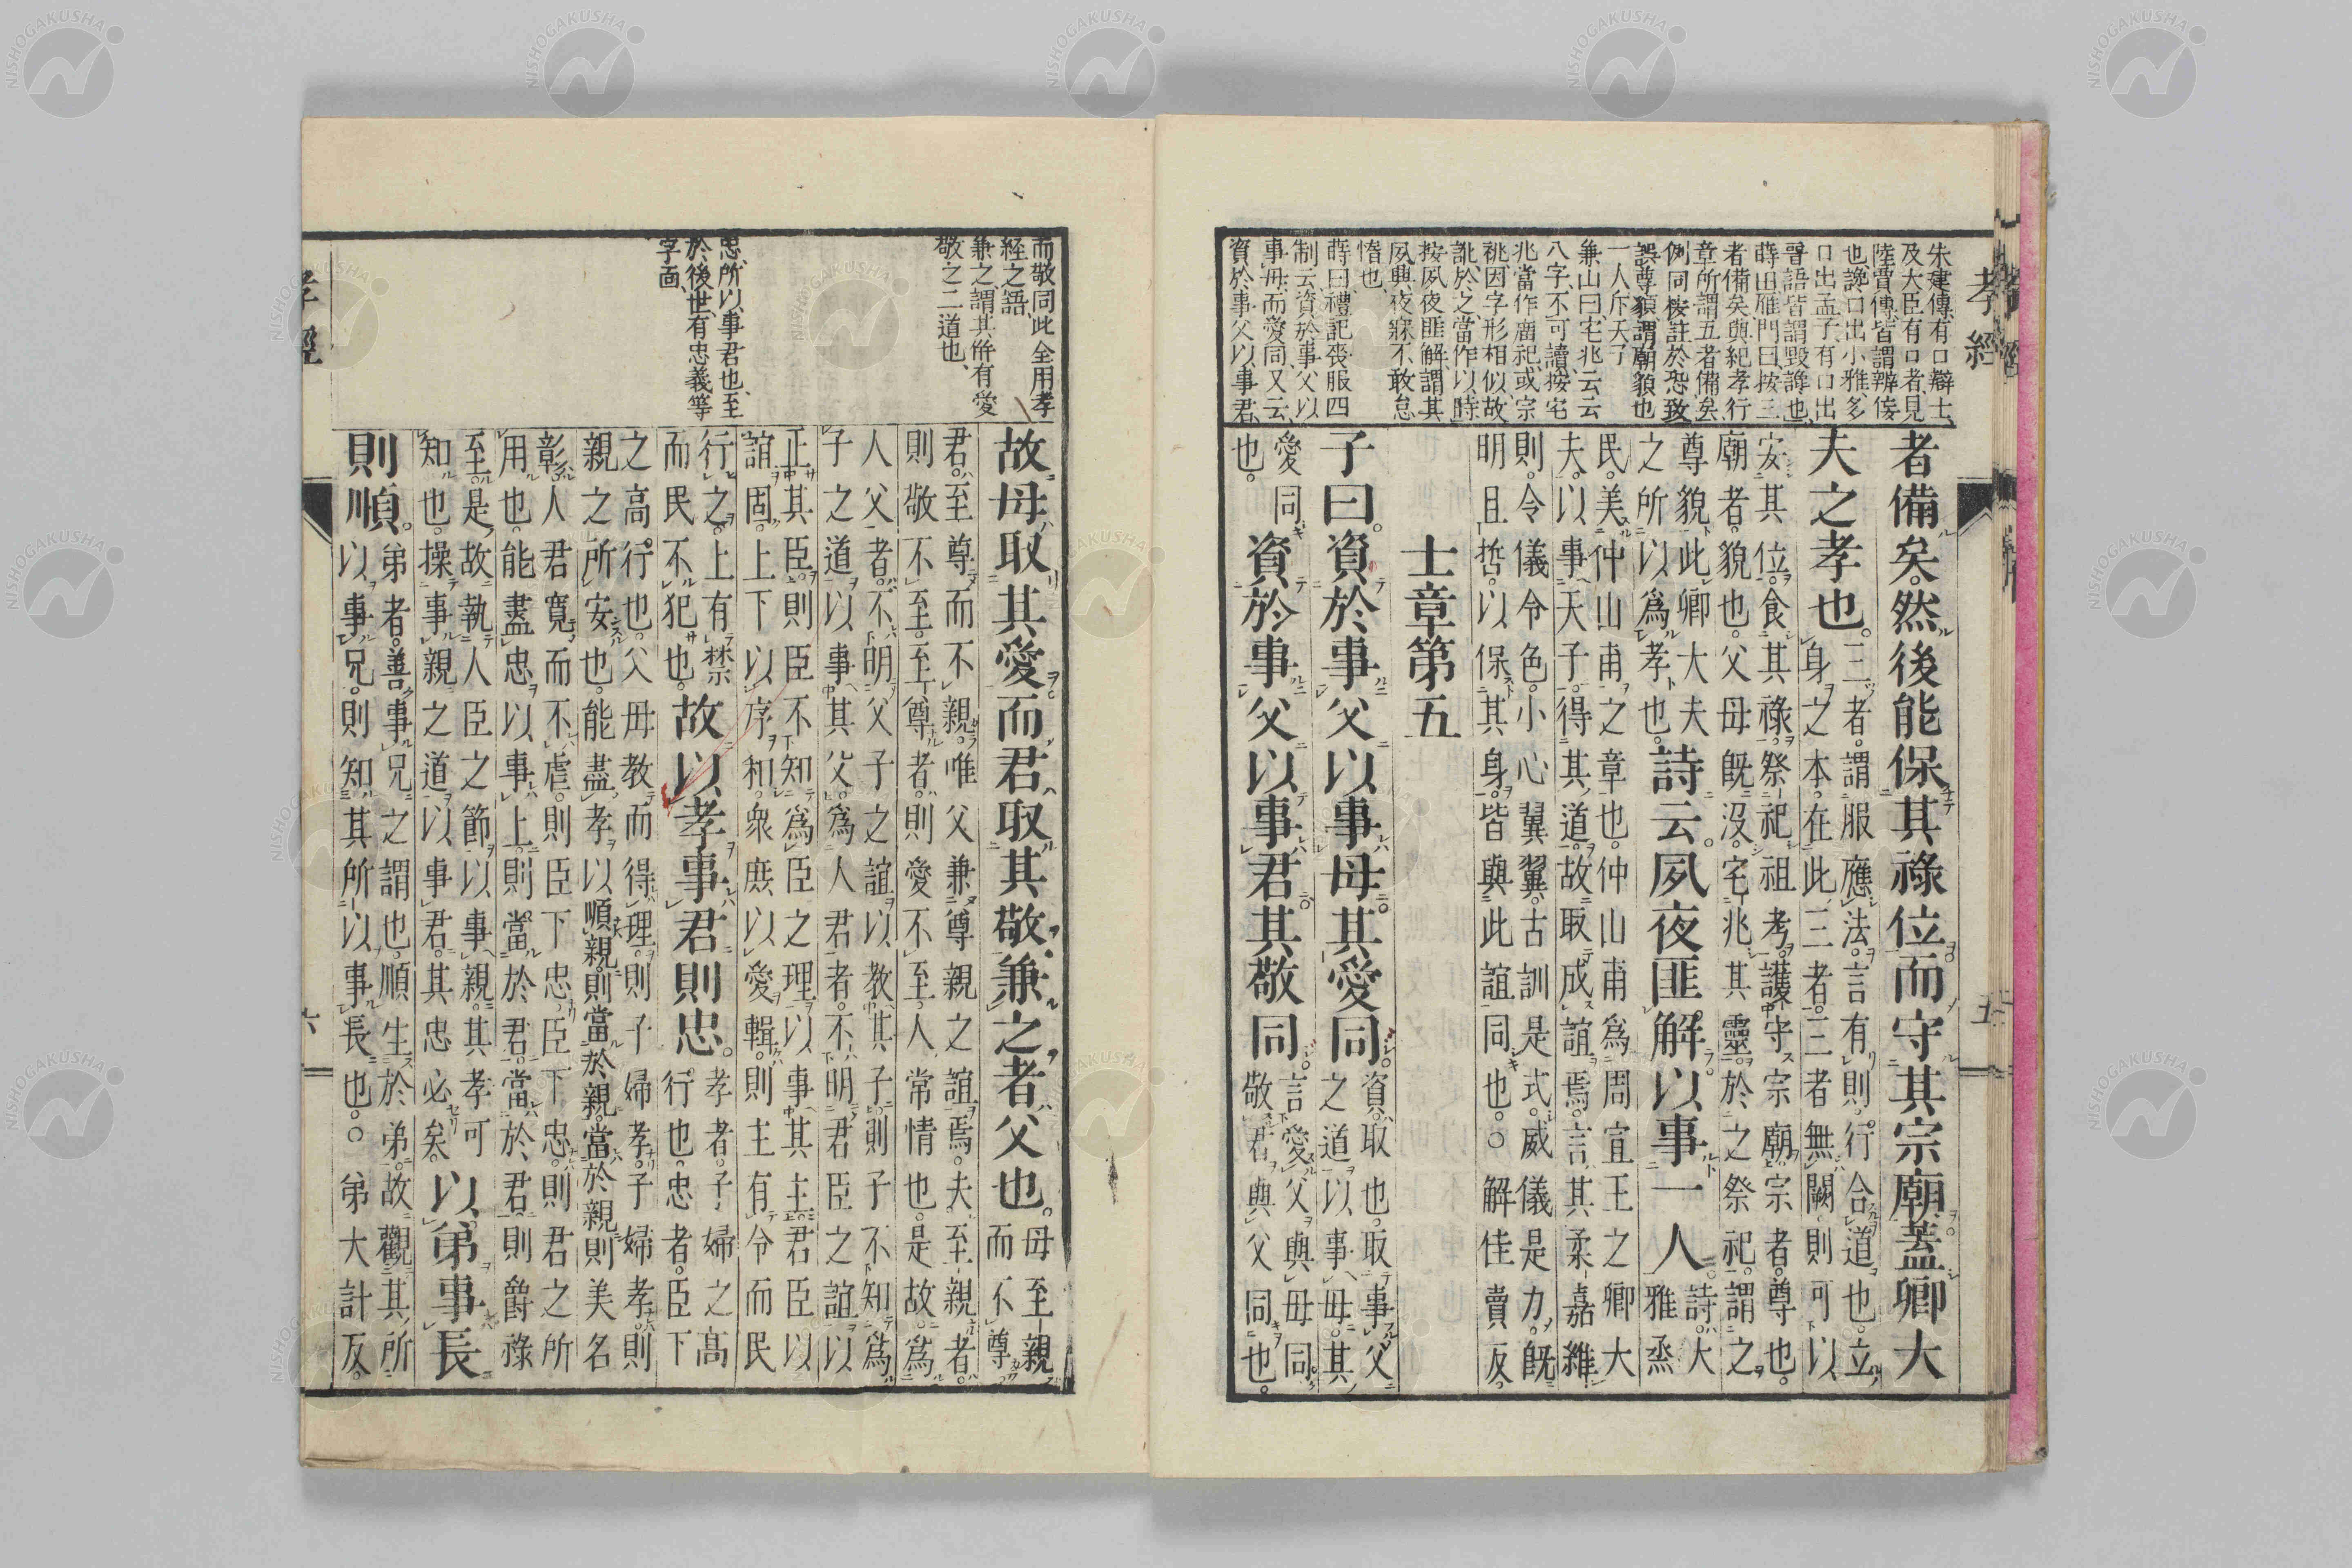 孝經
五
朱建傳、有口辯士、
及大臣有口者、見
陸賈傳、皆謂辯佞
也、讒口出小雅、多
口出孟子、有口出
晉語、皆謂毀謗也、
蒔山雁門曰、按三
者備矣與紀孝行
章所謂五者備矣
例同、按註於恐致
誤、尊貌、謂廟貌也
一人斥天子
兼山曰、宅兆云云
八字、不可讀、按宅
兆當作廟祀、或宗
祧因字形相似、故
訛於之、當作以時
按夙夜匪解、謂其
夙興夜寐、不敢怠
惰也、
蒔曰、禮記喪服四
制云、資於事父以
事母、而愛同、又云、
資於事父以事君、
者備矣。然後能保其祿位。而守其宗廟。蓋卿大
夫之孝也。
三者。謂服應法。言有則。行合道也。立
身之本。在此三者。三者無闕。則可以
安其位。食其祿。祭祀祖考。護守宗廟。宗者。尊也。
廟者。貌也。父母旣沒。宅兆其靈。於之祭祀。謂之
尊貌。此卿大夫
之所以爲孝也。
詩云。夙夜匪解。以事一人。
詩。大
雅烝
民。美仲山甫之章也。仲山甫爲周宣王之卿大
夫。以事天子。得其道。故取成誼焉。言其柔嘉維
則。令儀令色。小心翼翼。古訓是式。威儀是力。旣
明且哲。以保其身。皆與此誼同也。○解佳賣反。
士章第五
子曰。資於事父以事母。其愛同。
資。取也。取事父
之道。以事母。其
愛同
也。
資於事父以事君。其敬同。
言愛父與母同。
敬君與父同也。
而敬同、此全用孝
経之語、
兼之、謂其併有愛
敬之二道也、
忠、所以事君也、至
於後世、有忠義等
字面、
故母取其愛。而君取其敬。兼之者父也。
母至親
而不尊
君。至尊而不親。唯父兼尊親之誼焉。夫至親者。
則敬不至。至尊者。則愛不至。人常情也。是故。爲
人父者。不明父子之誼。以教其子。則子不知爲
子之道。以事其父。爲人君者。不明君臣之誼。以
正其臣。則臣不知爲臣之理。以事其主。君臣以
誼固。上下以序和。衆庶以愛輯。則主有令而民
行之。上有禁
而民不犯也。
故以孝事君則忠。
孝者。子婦之高
行也。忠者。臣下
之高行也。父母教而得理。則子婦孝。子婦孝。則
親之所安也。能盡孝以順親。則當於親。當於親。則美名
彰。人君寬而不虐。則臣下忠。臣下忠。則君之所
用也。能盡忠以事上。則當於君。當於君。則爵祿
至。是故執人臣之節。以事親。其孝可
知也。操事親之道。以事君。其忠必矣。
以弟事長
則順。
弟者。善事兄之謂也。順生於弟。故觀其所
以事兄。則知其所以事長也。○弟大計反。
孝經
六